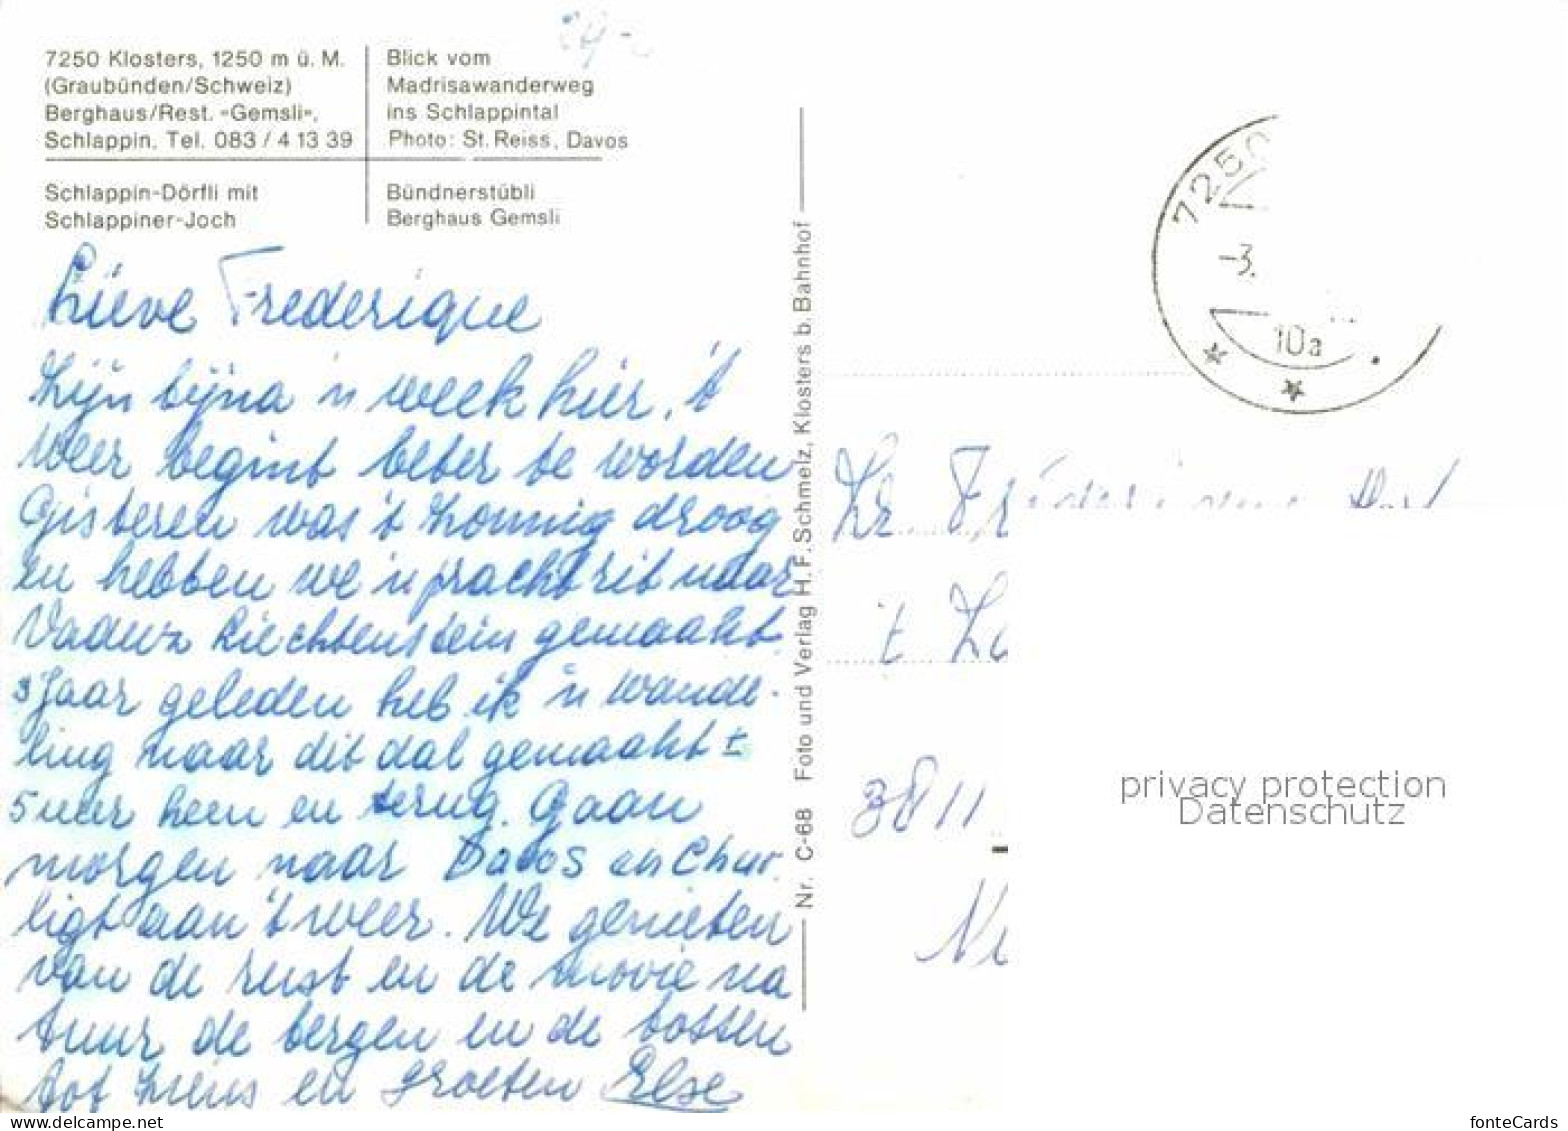 7250 Klosters, 1250 m ü. M.
(Graubünden/Schweiz)
Berghaus/Rest. «Gemsli»,
Schlappin, Tel. 083 / 4 13 39
Blick vom
Madrisawanderweg
ins Schlappintal
Photo: St. Reiss, Davos
Schlappin-Dörfli mit
Schlappiner-Joch
Bündnerstübli
Berghaus Gemsli
Lieve Frederique
Zijn bijna 'n week hier, 't
weer begint beter te worden
Gisteren was 't zonnig droog
en hebben we 'n pracht rit naar
Vaduz Liechtenstein gemaakt.
3 Jaar geleden heb ik 'n wande-
ling naar dit dal gemaakt ±
5 uur heen en terug. Gaan
morgen naar Davos en Chur.
ligt aan 't weer. We genieten
van de rust en de mooie na
tuur de bergen en de bossen
tot ziens en groeten Else
Nr. C-68 Foto und Verlag H. F. Schmelz, Klosters b. Bahnhof
7250
-3.
10a
't
3811
privacy protection
Datenschutz
www.delcampe.net
fonteCards